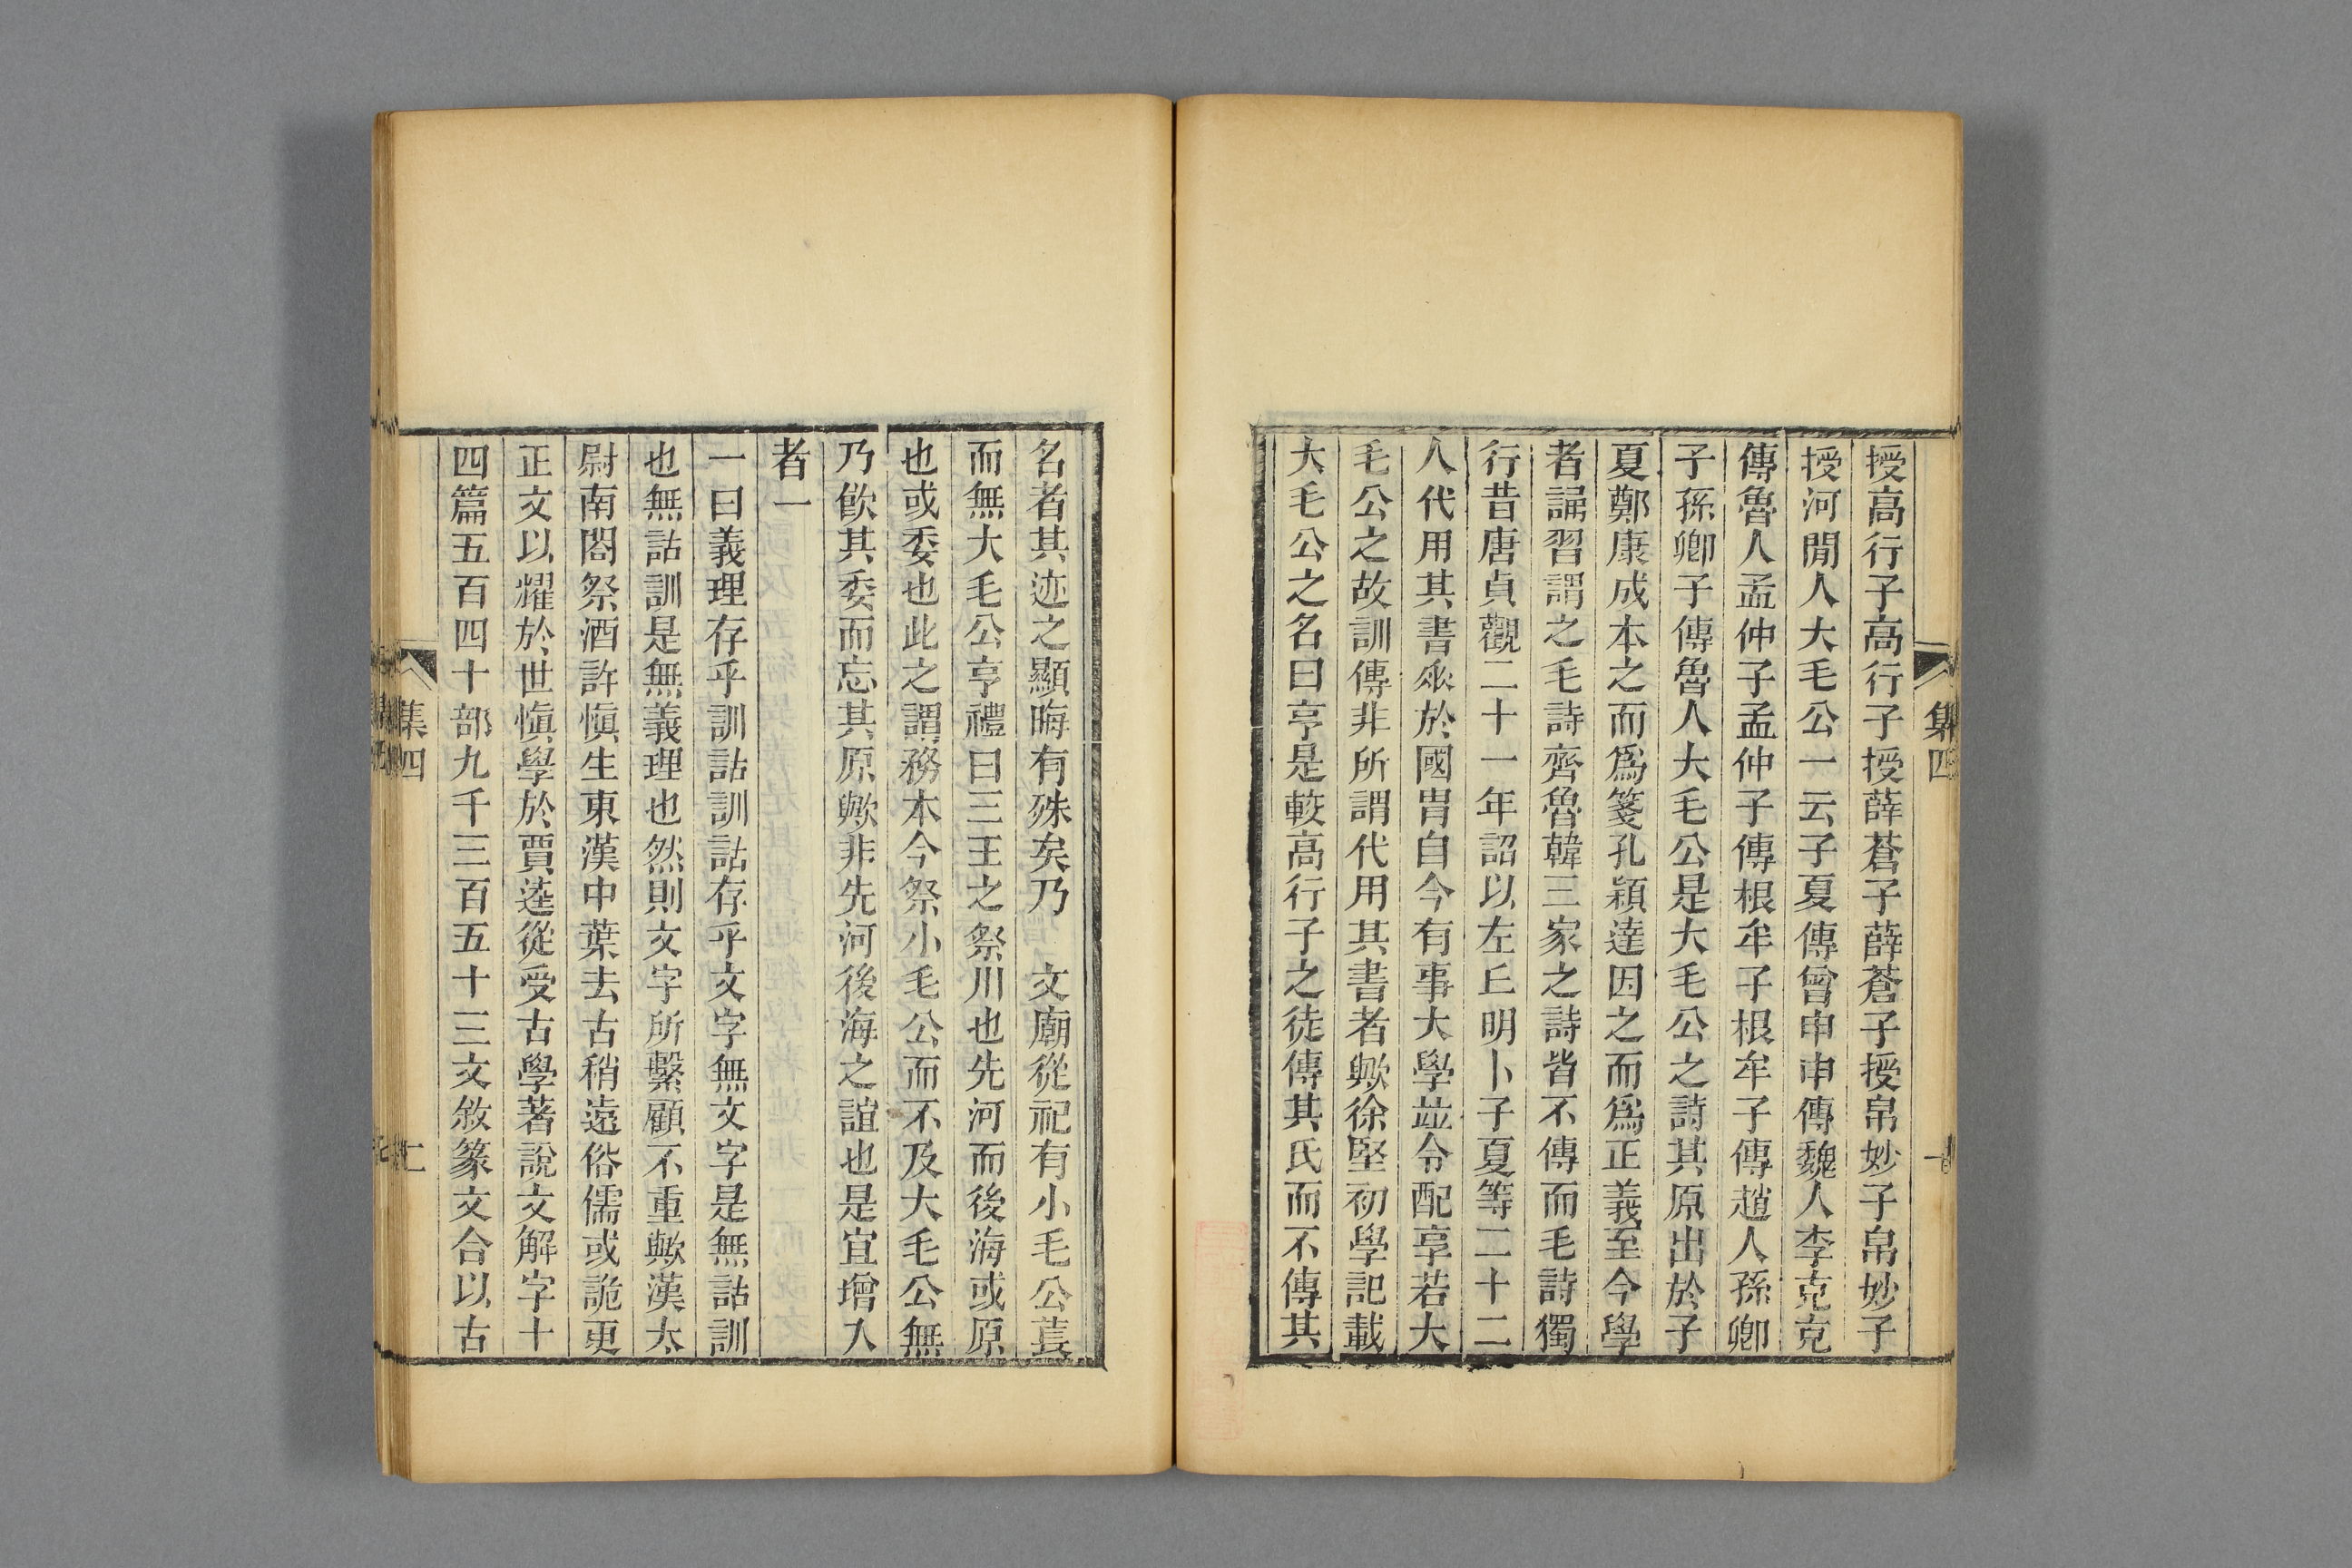 授高行子高行子授薛蒼子薛蒼子授帛妙子帛妙子
授河閒人大毛公一云子夏傳曾申申傳魏人李克克
傳魯人孟仲子孟仲子傳根牟子根牟子傳趙人孫卿
子孫卿子傳魯人大毛公是大毛公之詩其原出於子
夏鄭康成本之而爲箋孔穎達因之而爲正義至今學
者誦習謂之毛詩齊魯韓三家之詩皆不傳而毛詩獨
行昔唐貞觀二十一年詔以左丘明卜子夏等二十二
人代用其書垂於國胄自今有事大學竝令配享若大
毛公之故訓傳非所謂代用其書者歟徐堅初學記載
大毛公之名曰亨是較高行子之徒傳其氏而不傳其
集四
名者其迹之顯晦有殊矣乃　文廟從祀有小毛公萇
而無大毛公亨禮曰三王之祭川也先河而後海或原
也或委也此之謂務本今祭小毛公而不及大毛公無
乃飲其委而忘其原歟非先河後海之誼也是宜增入
者一
一曰義理存乎訓詁訓詁存乎文字無文字是無詁訓
也無詁訓是無義理也然則文字所繫顧不重歟漢太
尉南閣祭酒許愼生東漢中葉去古稍遠俗儒或詭更
正文以耀於世愼學於賈逵從受古學著說文解字十
四篇五百四十部九千三百五十三文敘篆文合以古
集四